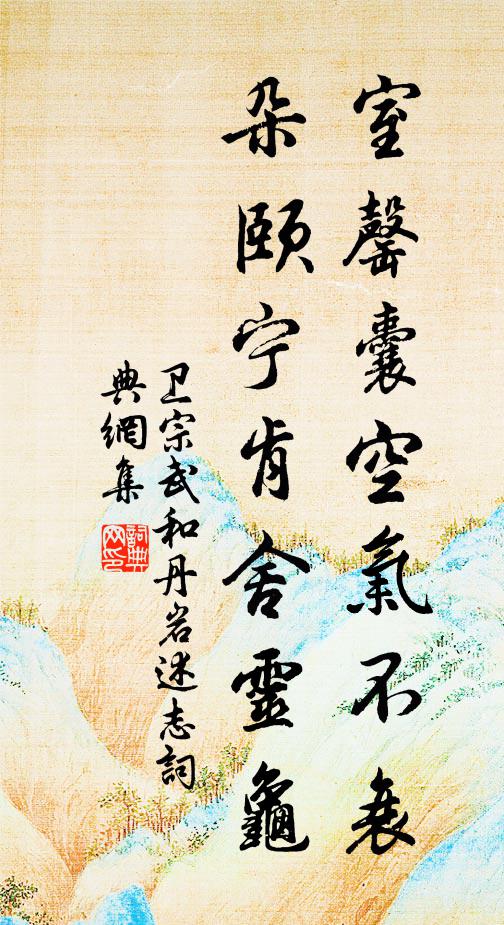 室罄囊空氣不衰
朵頤宁肯舍靈龜
卫宗武和丹岩述志詞
典網集
詞典